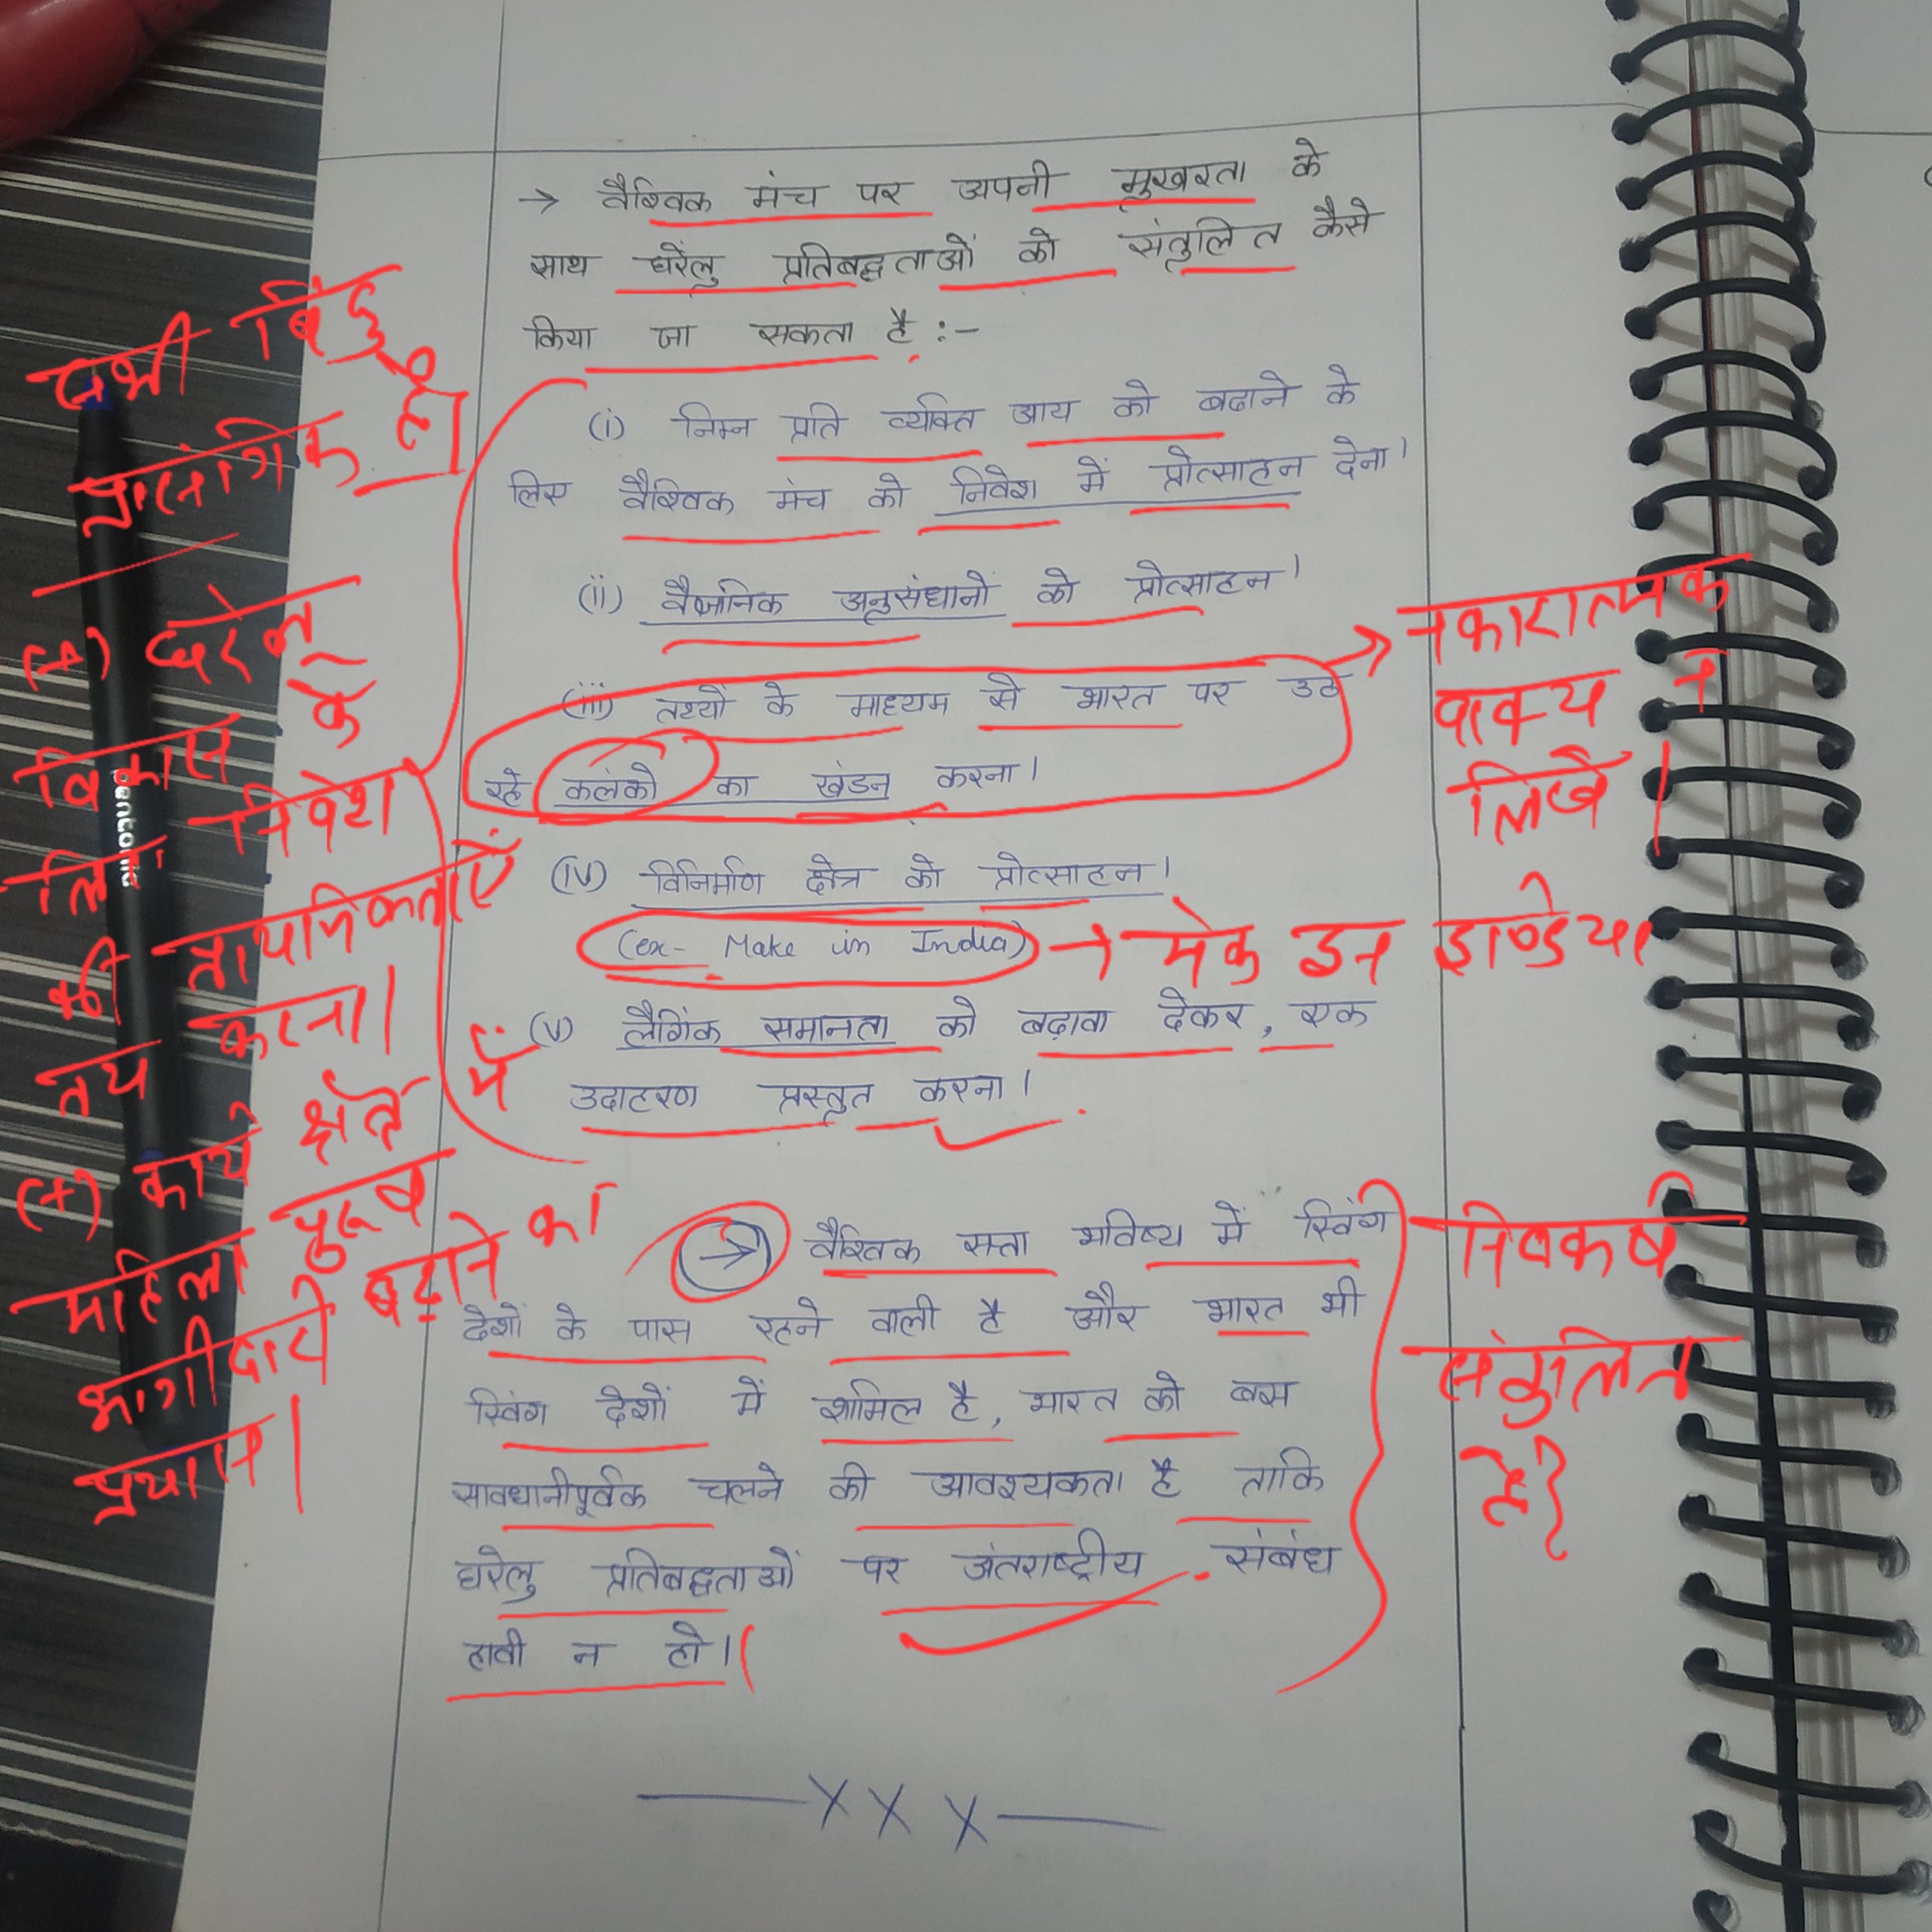 → वैश्विक मंच पर अपनी मुखरता के
साथ घरेलु प्रतिबद्धताओं को संतुलित कैसे
किया जा सकता है :-
(i) निम्न प्रति व्यक्ति आय को बढाने के
लिए वैश्विक मंच को निवेश में प्रोत्साहन देना।
(ii) वैज्ञानिक अनुसंधानों को प्रोत्साहन।
(iii) तथ्यों के माध्यम से भारत पर उठ
रहे कलंको का खंडन करना।
(iv) विनिर्माण क्षेत्र को प्रोत्साहन।
(ex- Make in India) → मेक इन इण्डिया
(v) लैंगिक समानता को बढ़ावा देकर, एक
उदाहरण प्रस्तुत करना।
→ वैश्विक सत्ता भविष्य में स्विंग
देशों के पास रहने वाली है और भारत भी
स्विंग देशों में शामिल है, भारत को बस
सावधानीपूर्वक चलने की आवश्यकता है ताकि
घरेलु प्रतिबद्धताओं पर अंतराष्ट्रीय संबंध
हावी न हो।
—x x x—
सभी बिंदु
प्रासंगिक है।
(+) घरेलू
विकास के
लिए निवेश
की प्राथमिकताएँ
तय करना।
(+) कार्य क्षेत्र में
महिला पुरूष
भागीदारी बढ़ाने का
प्रयास।
→ नकारात्मक
वाक्य न
लिखें।
निष्कर्ष
संतुलित
है।
pentonic